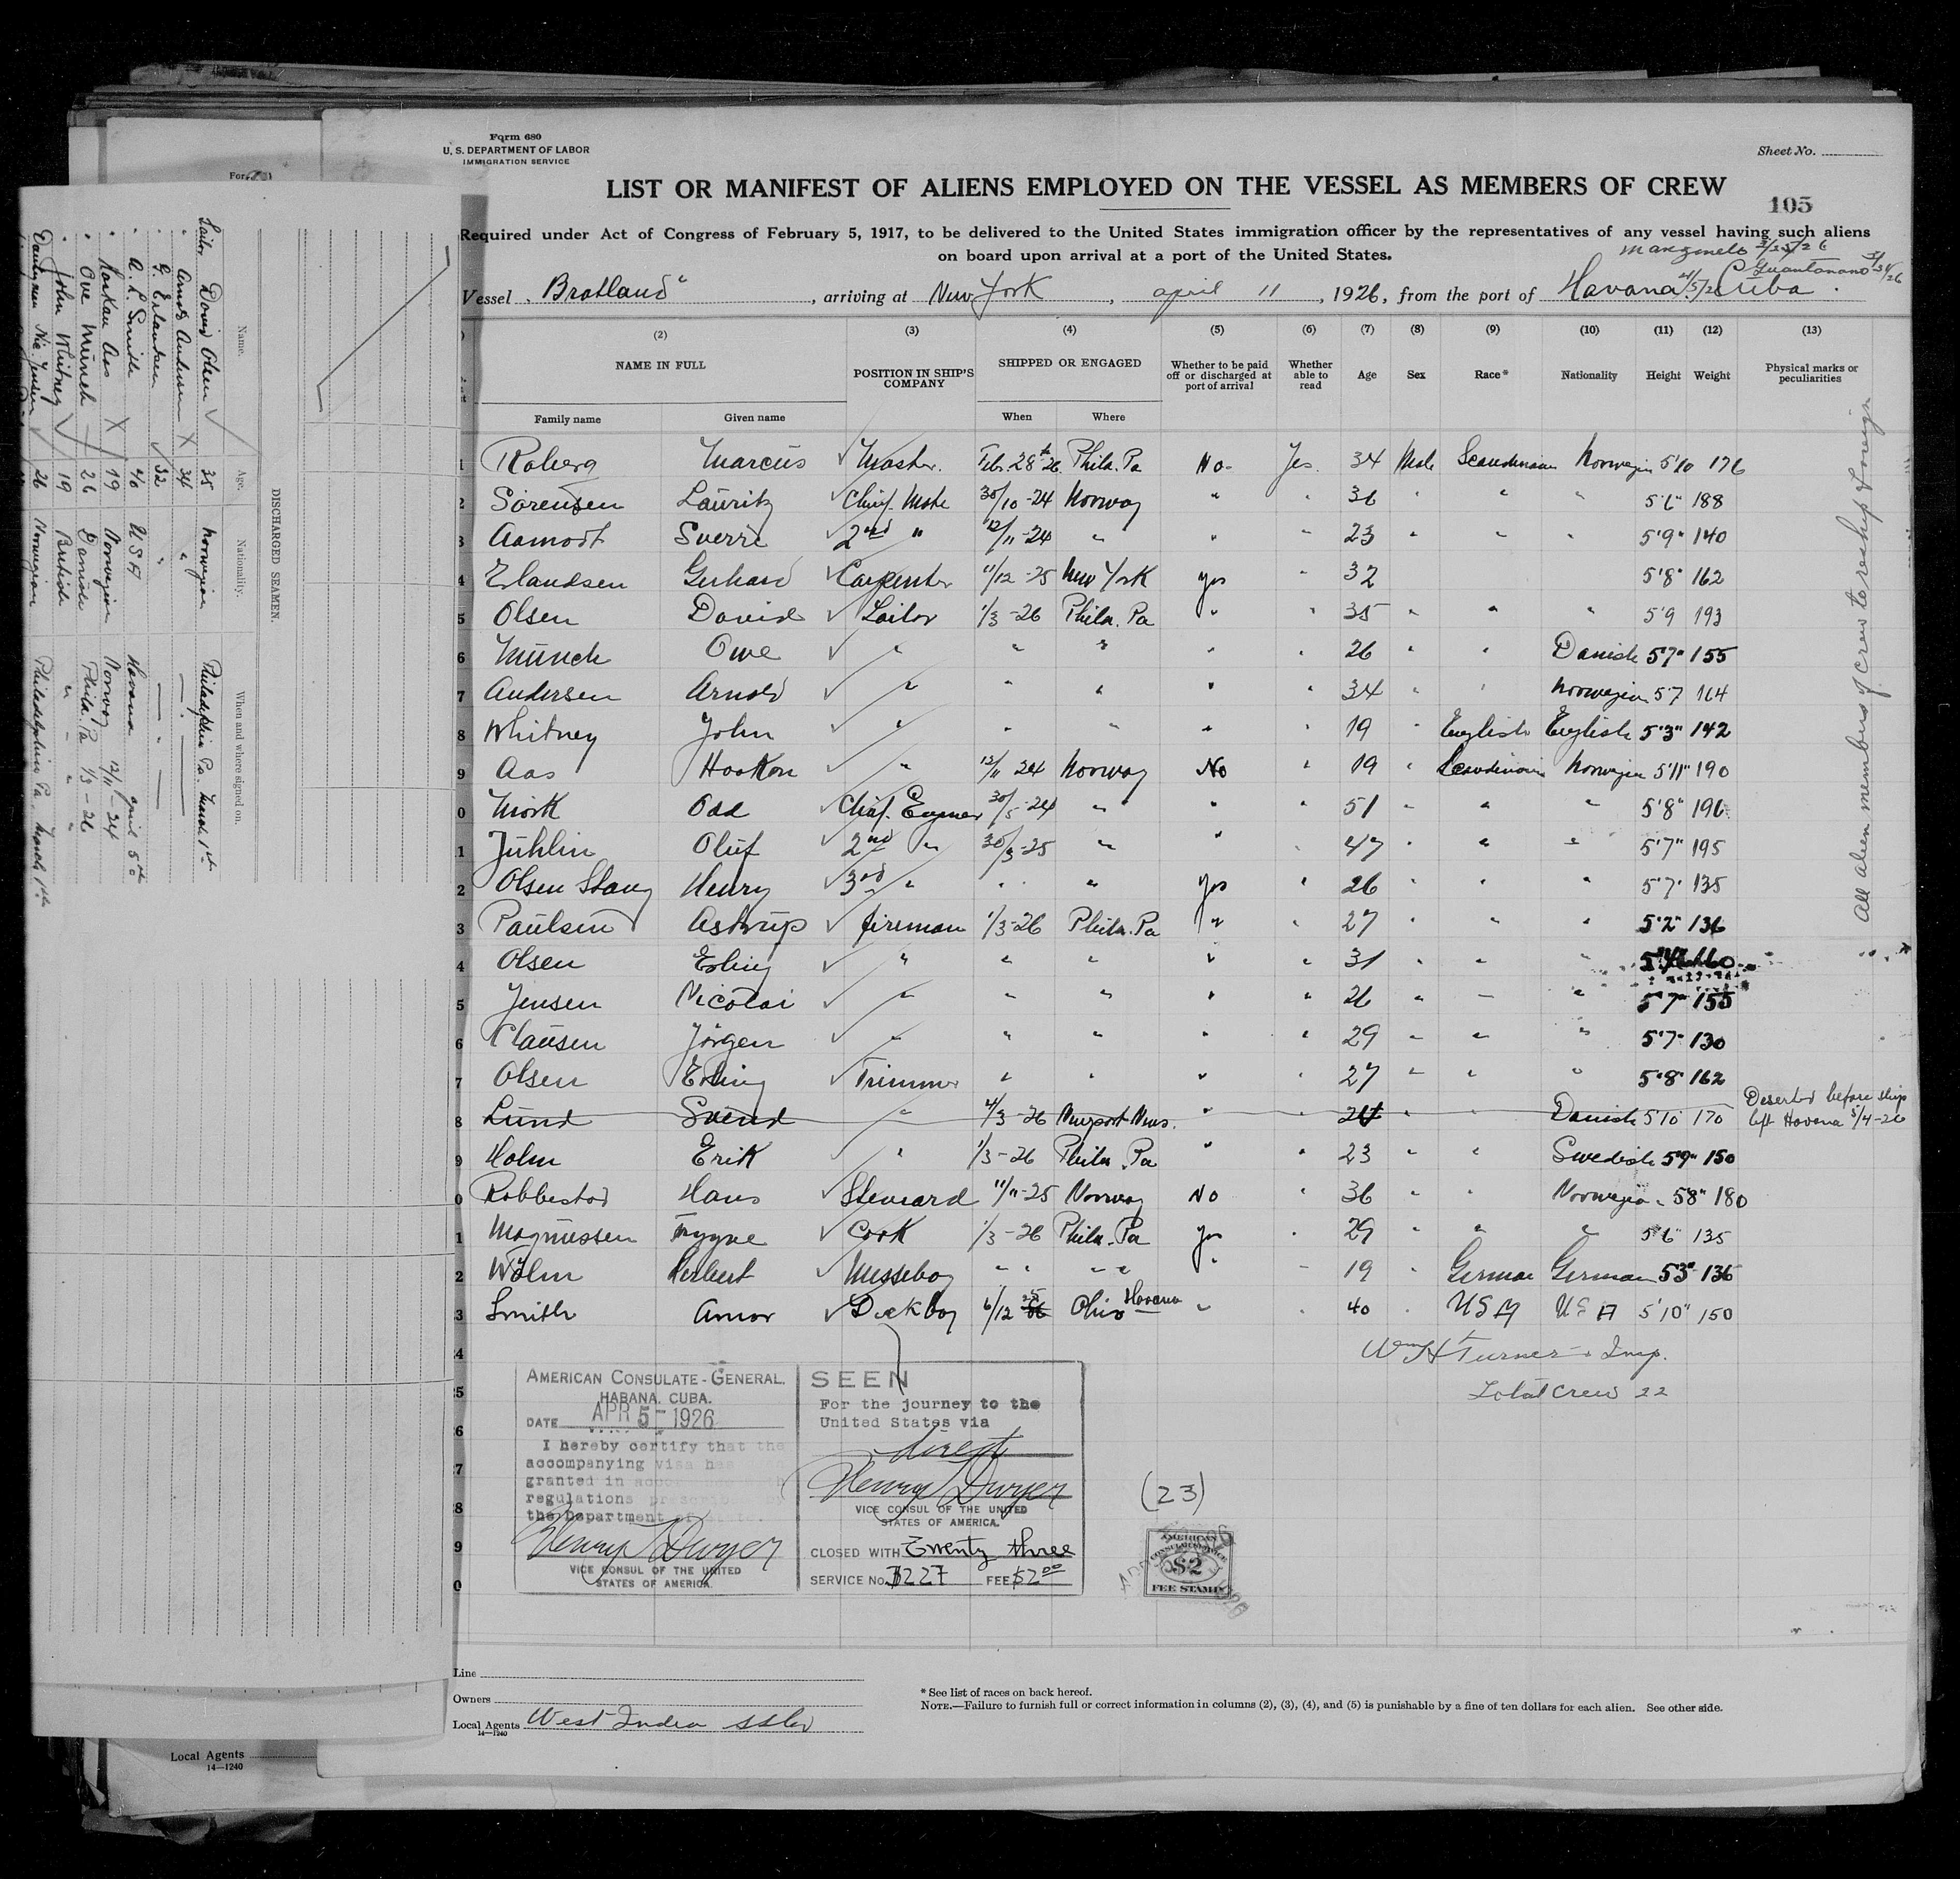 Form 680
U. S. DEPARTMENT OF LABOR
IMMIGRATION SERVICE
Sheet No.
LIST OR MANIFEST OF ALIENS EMPLOYED ON THE VESSEL AS MEMBERS OF CREW
105
Required under Act of Congress of February 5, 1917, to be delivered to the United States immigration officer by the representatives of any vessel having such aliens
on board upon arrival at a port of the United States.
Vessel "Bratland", arriving at New York, april 11, 1926, from the port of Havana Cuba.
(2) (3) (4) (5) (6) (7) (8) (9) (10) (11) (12) (13)
NAME IN FULL POSITION IN SHIP'S COMPANY SHIPPED OR ENGAGED Whether to be paid off or discharged at port of arrival Whether able to read Age Sex Race* Nationality Height Weight Physical marks or peculiarities
Family name Given name When Where
1 Roberg Marcus Master. Feb. 28th 26. Phila. Pa No. Yes. 34 Male Scandinavian Norwegian 5'10 176
2 Sörensen Lauritz Chief. Mate 30/10-24 Norway " " 36 " " " 5'6" 188
3 Aamodt Sverre 2nd " 12/11-24 " " " 23 " " " 5'9" 140
4 Elandsen Gerhard Carpenter 11/12-25 New York yes " 32 5'8" 162
5 Olsen David Sailor 1/3-26 Phila. Pa " " 35 " " " 5'9 193
6 Münch Owe " " " " " 26 " " Danish 5'7" 155
7 Andersen Arnold " " " " " 34 " " Norwegian 5'7 164
8 Whitney John " " " " " 19 " English English 5'3" 142
9 Aas Haakon " 12/11-24 Norway No " 19 " Scandinavian Norwegian 5'11" 190
0 Mörk Odd Chief. Engineer 30/5-24 " " " 51 " " " 5'8" 196
1 Juhlin Oluf 2nd " 30/3-25 " " " 47 " " " 5'7" 195
2 Olsen Stang Henry 3rd " " " " yes " 26 " " " 5'7" 135
3 Paulsen Astrup fireman 1/3-26 Phila. Pa " " 27 " " " 5'2" 136
4 Olsen Erling " " " " " 31 " " " 160
5 Jensen Nicolai " " " " " 26 " " " 5'7" 155
6 Clausen Jörgen " " " " " 29 " " " 5'7" 130
7 Olsen Erling Trimmer " " " " 27 " " " 5'8" 162
8 Lund Svend " 4/3-26 Newport News. " " 24 " " Danish 5'10 170 Deserted before ship left Havana 5/4-26
9 Holm Erik " 1/3-26 Phila. Pa " " 23 " " Swedish 5'9" 150
0 Robbestad Hans Steward 11/11-25 Norway No " 36 " " Norwegian 5'8" 180
1 Magnussen Trygve Cook 1/3-26 Phila. Pa yes " 29 " " " 5'6" 135
2 Wölm Herbert Messeboy " " " " " " 19 " German German 5'3" 136
3 Smith Amor Deckboy 6/12 25 Ohio Havana " " 40 " USA USA 5'10" 150
24
25
26
27
28
29
0
All alien members of crew to reship foreign
Wm H Turner Insp.
Total Crew 22
AMERICAN CONSULATE-GENERAL.
HABANA. CUBA.
DATE APR 5- 1926
I hereby certify that the
accompanying visa has
granted in
regulations
the Department of
Henry T Dwyer
VICE CONSUL OF THE UNITED
STATES OF AMERICA.
SEEN
For the journey to the
United States via
direct
Henry T Dwyer
VICE CONSUL OF THE UNITED
STATES OF AMERICA.
CLOSED WITH Twenty three
SERVICE No. 1227 FEE $2.00
(23)
AMERICAN
CONSULAR SERVICE
$2
FEE STAMP
Line
Owners
Local Agents West India SS Co
14—1240
* See list of races on back hereof.
NOTE.—Failure to furnish full or correct information in columns (2), (3), (4), and (5) is punishable by a fine of ten dollars for each alien. See other side.
DISCHARGED SEAMEN.
Name. Age. Nationality. When and where signed on.
Sailor David Olsen 35 Norwegian Philadelphia Pa. March 1st
" Arnold Andersen 34 " "
" G. Erlandsen 32 " "
" A. L. Smith 40 USA Havana april 5th
" Haakon Aas 19 Norwegian Norway 12/11-24
" Ove Münch 26 Danish Phila. Pa 1/3-26
" John Whitney 19 British " "
Donkeyman Nic. Jensen 26 Norwegian Philadelphia Pa. March 1st
Local Agents
14—1240